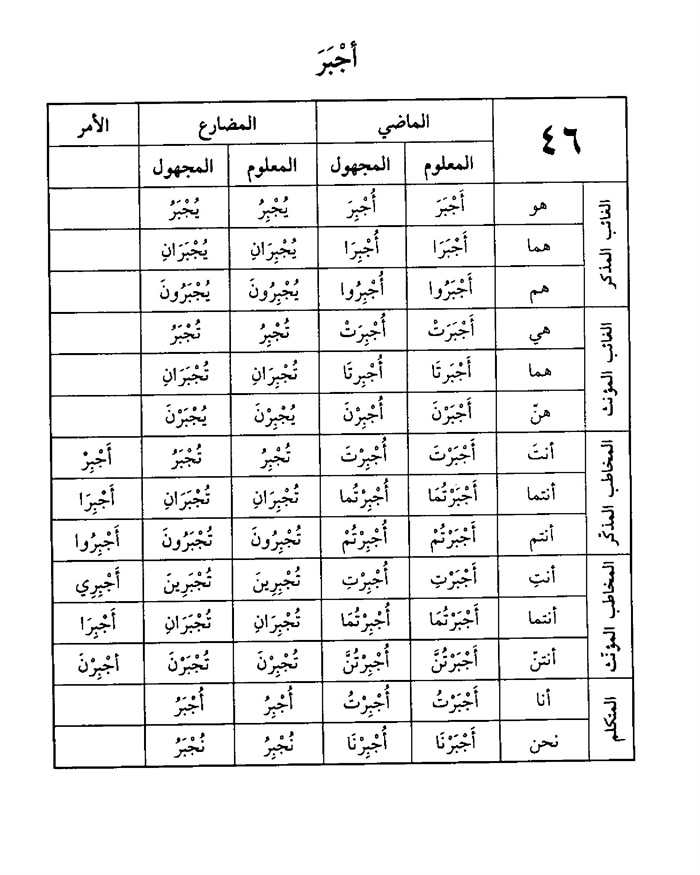 أجْبَرَ
٤٦ الماضي المضارع الأمر
المعلوم المجهول المعلوم المجهول
الغائب المذكر
هو أَجْبَرَ أُجْبِرَ يُجْبِرُ يُجْبَرُ
هما أَجْبَرَا أُجْبِرَا يُجْبِرَانِ يُجْبَرَانِ
هم أَجْبَرُوا أُجْبِرُوا يُجْبِرُونَ يُجْبَرُونَ
الغائب المؤنث
هي أَجْبَرَتْ أُجْبِرَتْ تُجْبِرُ تُجْبَرُ
هما أَجْبَرَتَا أُجْبِرتَا تُجْبِرَانِ تُجْبَرَانِ
هنّ أَجْبَرْنَ أُجْبِرْنَ يُجْبِرْنَ يُجْبَرْنَ
المخاطب المذكّر
أنتَ أَجْبَرْتَ أُجْبِرْتَ تُجْبِرُ تُجْبَرُ أَجْبِرْ
أنتما أَجْبَرْتُمَا أُجْبِرْتُما تُجْبِرَانِ تُجْبَرَانِ أَجْبِرَا
أنتم أَجْبَرْتُمْ أُجْبِرْتُمْ تُجْبِرُونَ تُجْبَرُونَ أَجْبِرُوا
المخاطب المؤنّث
أنتِ أَجْبَرْتِ أُجْبِرْتِ تُجْبِرِينَ تُجْبَرِينَ أَجْبِرِي
أنتما أَجْبَرْتُمَا أُجْبِرْتُمَا تُجْبِرَانِ تُجْبَرَانِ أَجْبِرَا
أنتنّ أَجْبَرْتُنَّ أُجْبِرْتُنَّ تُجْبِرْنَ تُجْبَرْنَ أجْبِرْنَ
المتكلم
أنا أَجْبَرْتُ أُجْبِرْتُ أُجْبِرُ أُجْبَرُ
نحن أَجْبَرْنَا أُجْبِرْنَا نُجْبِرُ نُجْبَرُ